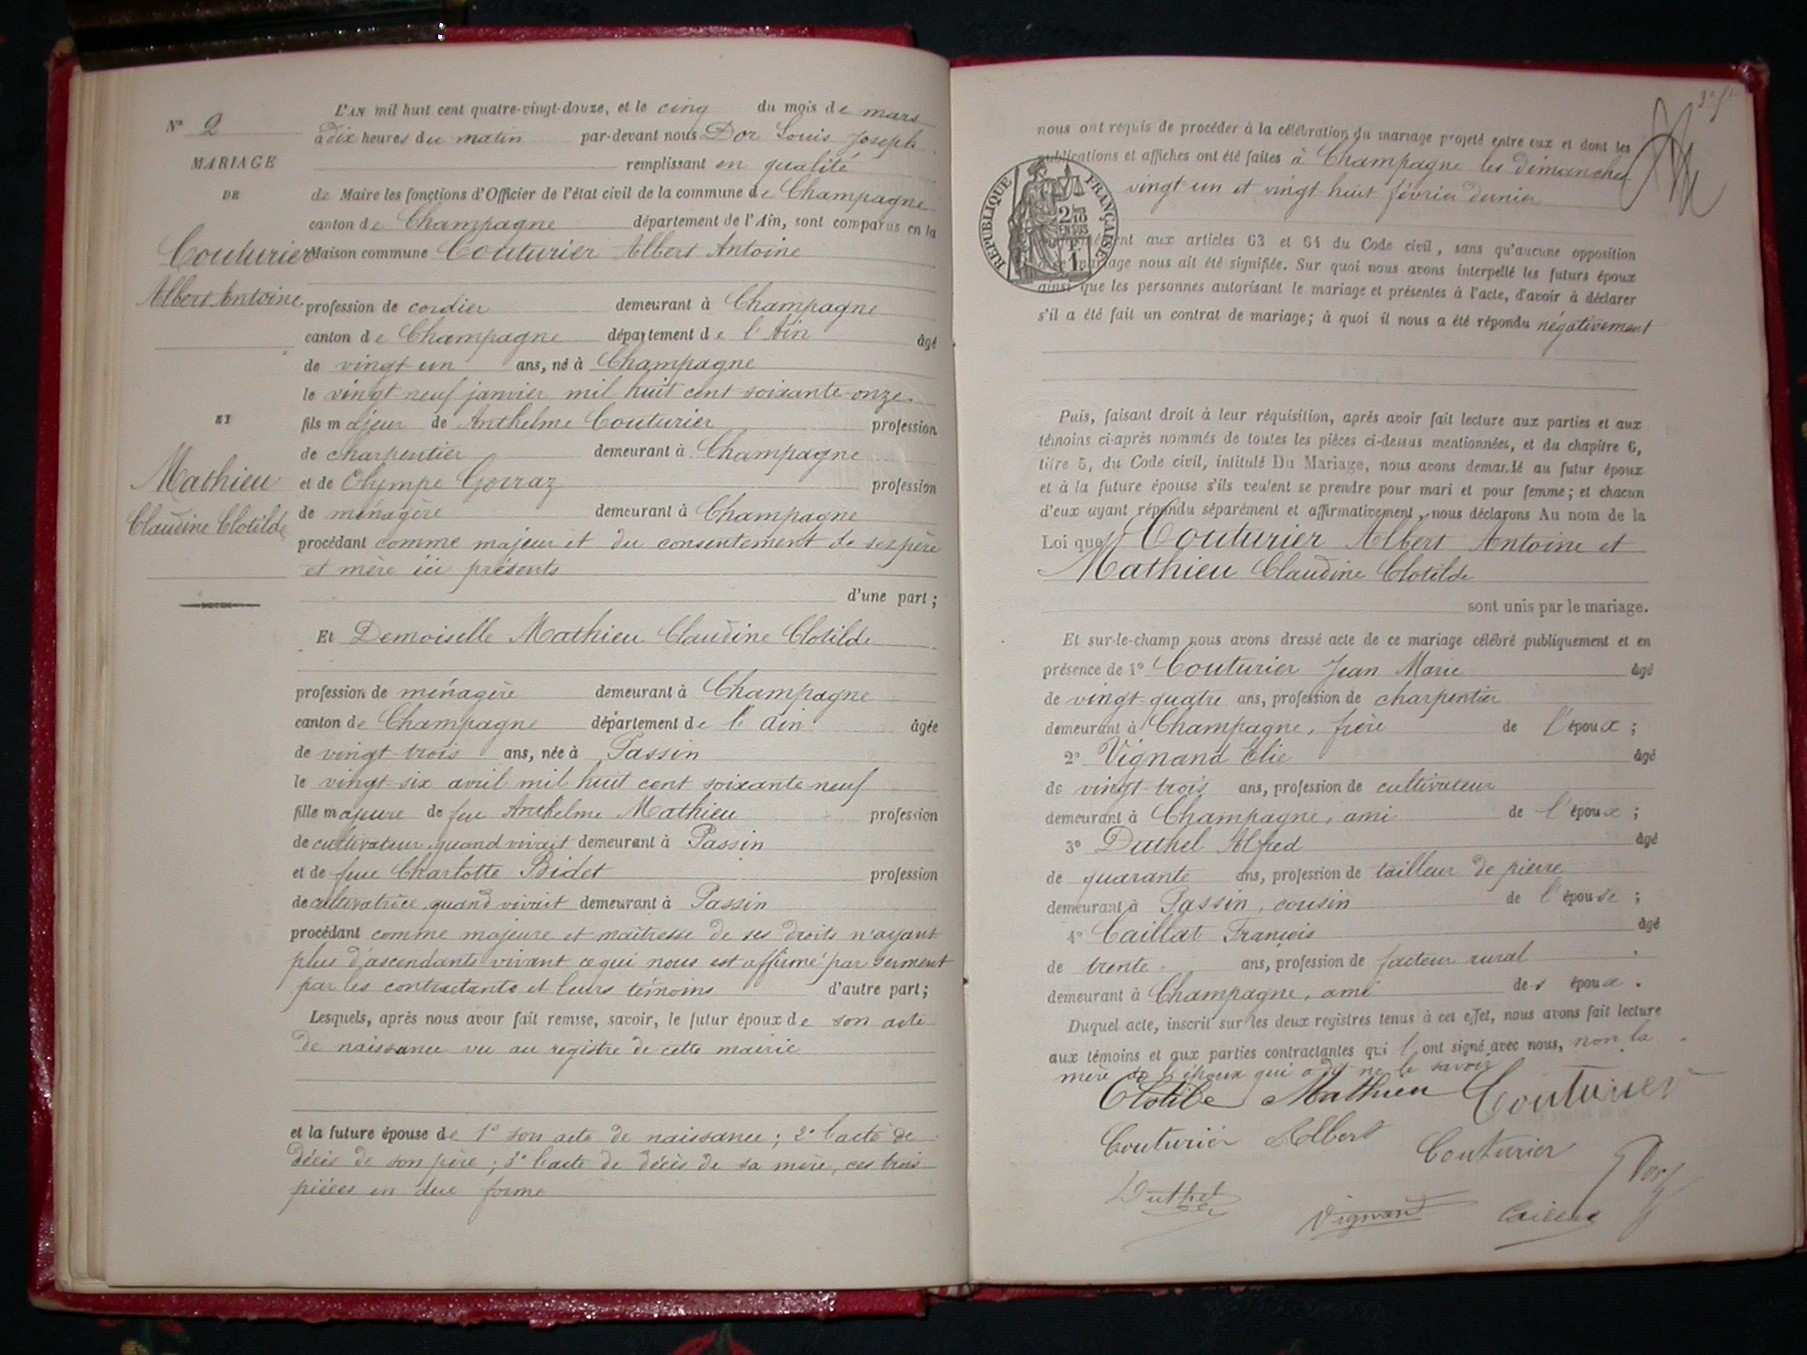 N° 2
MARIAGE
DE
Couturier
Albert Antoine
ET
Mathieu
Claudine Clotilde
L'AN mil huit cent quatre-vingt-douze, et le cinq du mois de mars
à dix heures du matin par-devant nous Dor Louis Joseph
remplissant en qualité
de Maire les fonctions d'Officier de l'état civil de la commune de Champagne
canton de Champagne département de l'Ain, sont comparus en la
Maison commune Couturier Albert Antoine
profession de cordier demeurant à Champagne
canton de Champagne département de l'Ain âgé
de vingt un ans, né à Champagne
le vingt neuf janvier mil huit cent soixante-onze
fils majeur de Anthelme Couturier profession
de charpentier demeurant à Champagne
et de Olympe Gorraz profession
de ménagère demeurant à Champagne
procédant comme majeur et du consentement de ses père
et mère ici présents
d'une part ;
Et Demoiselle Mathieu Claudine Clotilde
profession de ménagère demeurant à Champagne
canton de Champagne département de l'Ain âgée
de vingt trois ans, née à Passin
le vingt-six avril mil huit cent soixante neuf
fille majeure de feu Anthelme Mathieu profession
de cultivateur quand vivait demeurant à Passin
et de feue Charlotte Bidet profession
de cultivatrice quand vivait demeurant à Passin
procédant comme majeure et maîtresse de ses droits n'ayant
plus d'ascendants vivant ce qui nous est affirmé par serment
par les contractants et leurs témoins d'autre part ;
Lesquels, après nous avoir fait remise, savoir, le futur époux de son acte
de naissance vu au registre de cette mairie
et la future épouse de 1° son acte de naissance ; 2° l'acte de
décès de son père ; 3° l'acte de décès de sa mère, ces trois
pièces en due forme
nous ont requis de procéder à la célébration du mariage projeté entre eux et dont les
publications et affiches ont été faites à Champagne les dimanches
vingt un et vingt huit février dernier
RÉPUBLIQUE FRANÇAISE
aux articles 63 et 64 du Code civil, sans qu'aucune opposition
mariage nous ait été signifiée. Sur quoi nous avons interpellé les futurs époux
ainsi que les personnes autorisant le mariage et présentes à l'acte, d'avoir à déclarer
s'il a été fait un contrat de mariage ; à quoi il nous a été répondu négativement
Puis, faisant droit à leur réquisition, après avoir fait lecture aux parties et aux
témoins ci-après nommés de toutes les pièces ci-dessus mentionnées, et du chapitre 6,
titre 5, du Code civil, intitulé Du Mariage, nous avons demandé au futur époux
et à la future épouse s'ils veulent se prendre pour mari et pour femme ; et chacun
d'eux ayant répondu séparément et affirmativement, nous déclarons Au nom de la
Loi que Couturier Albert Antoine et
Mathieu Claudine Clotilde
sont unis par le mariage.
Et sur-le-champ nous avons dressé acte de ce mariage célébré publiquement et en
présence de 1° Couturier Jean Marie âgé
de vingt-quatre ans, profession de charpentier
demeurant à Champagne, frère de l'époux ;
2° Vignand Elie âgé
de vingt-trois ans, profession de cultivateur
demeurant à Champagne, ami de l'époux ;
3° Duthel Alfred âgé
de quarante ans, profession de tailleur de pierre
demeurant à Passin, cousin de l'épouse ;
4° Caillat François âgé
de trente ans, profession de facteur rural
demeurant à Champagne, ami des époux.
Duquel acte, inscrit sur les deux registres tenus à cet effet, nous avons fait lecture
aux témoins et aux parties contractantes qui l'ont signé avec nous, non la
mère de l'époux qui a dit ne le savoir
Clotilde Mathieu Couturier
Couturier Albert Couturier Dor
Duthel Vignand